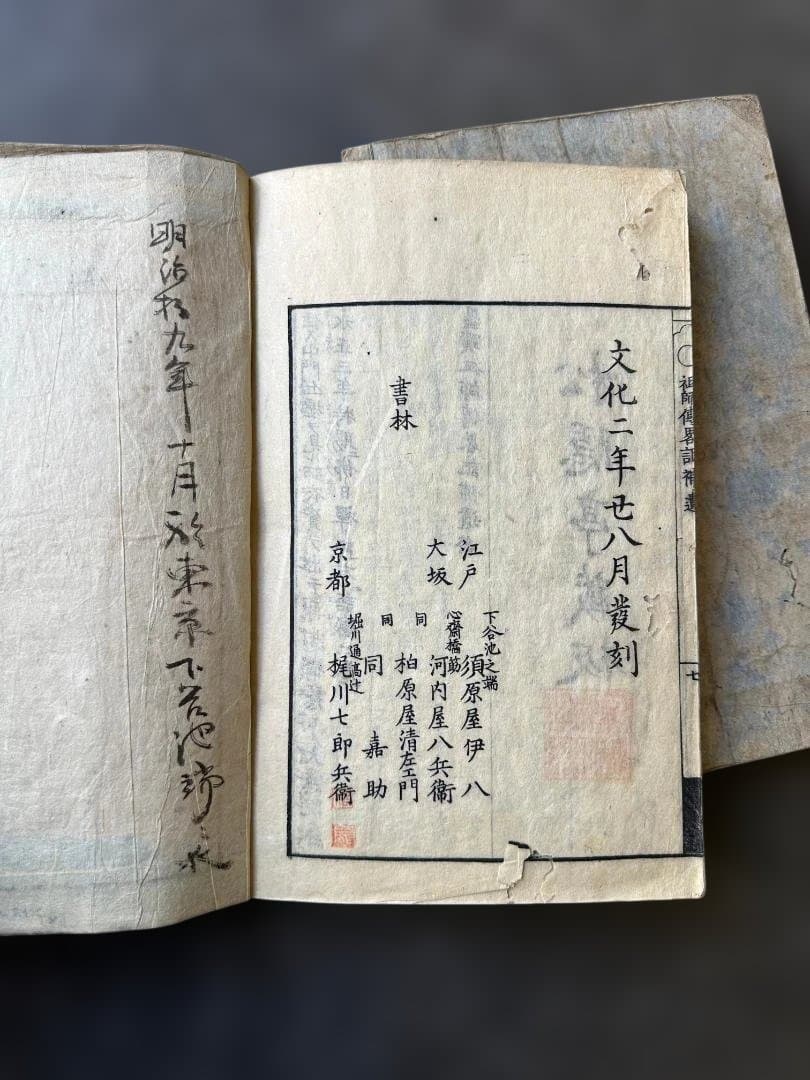 祖師傳畧記補遺
七
文化二年丑八月發刻
書林
江戸 下谷池之端 須原屋伊八
大坂 心齋橋筋 河内屋八兵衞
同 柏原屋清左エ門
同 同 嘉助
京都 堀川通高辻 梶川七郎兵衞
明治拾九年十月於東京下谷池端